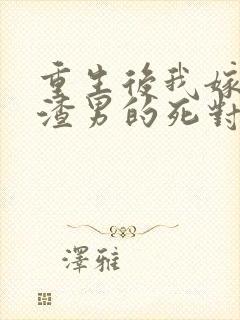 重生後我嫁
渣男的死對
澤雅